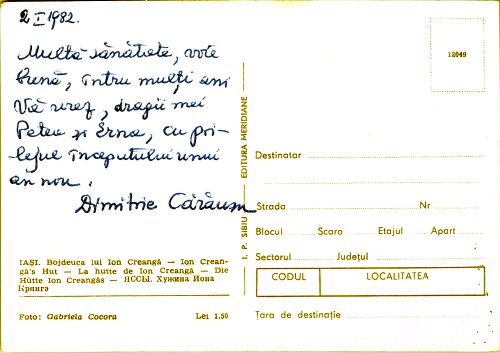 2 I 1982.
Multă sănătate, voie
bună, întru mulți ani
Vă urez, dragii mei
Petea și Erna, cu pri-
lejul începutului unui
an nou.
Dimitrie Cărăum
IAȘI. Bojdeuca lui Ion Creangă — Ion Crean-
gă's Hut — La hutte de Ion Creangă — Die
Hütte Ion Creangăs — ЯССЫ. Хужина Иона
Крянгэ
Foto: Gabriela Cocora Lei 1,50
I. P. SIBIU EDITURA MERIDIANE
12049
Destinatar
Strada Nr
Blocul Scara Etajul Apart
Sectorul Județul
CODUL LOCALITATEA
Țara de destinație